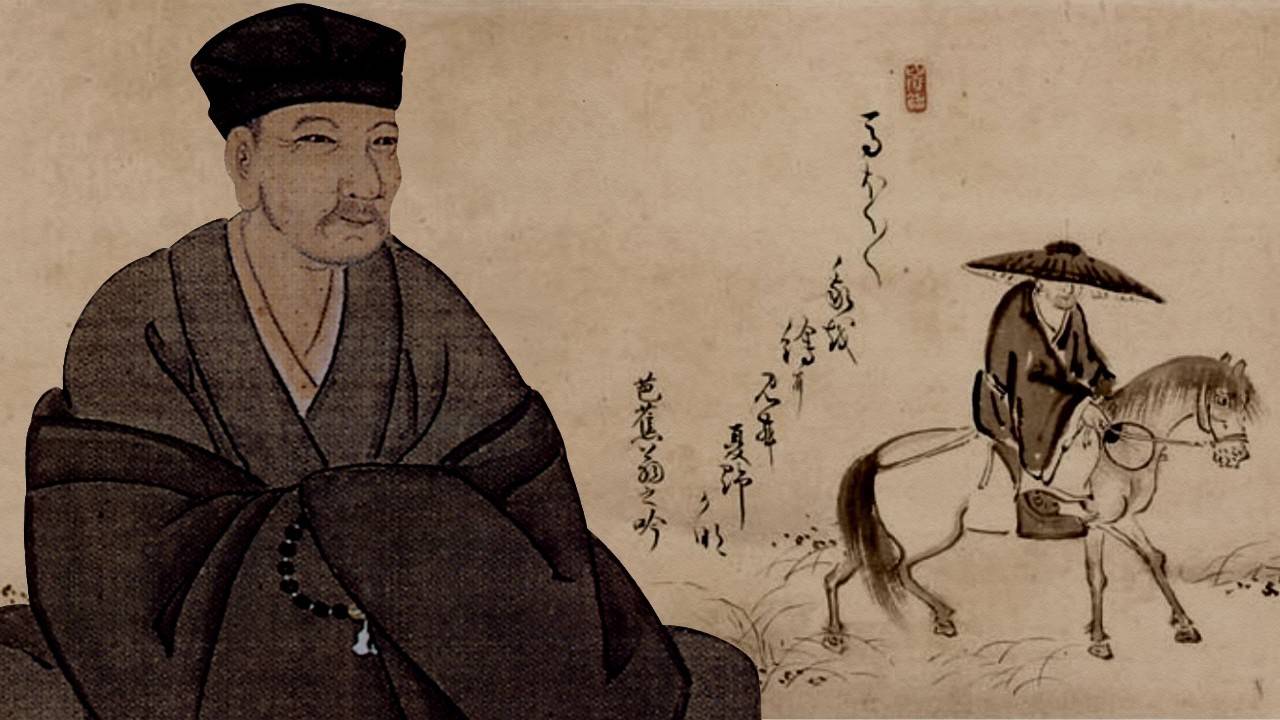 馬ほく〳〵
我を
繪に
見る
夏野
かな
芭蕉翁之吟